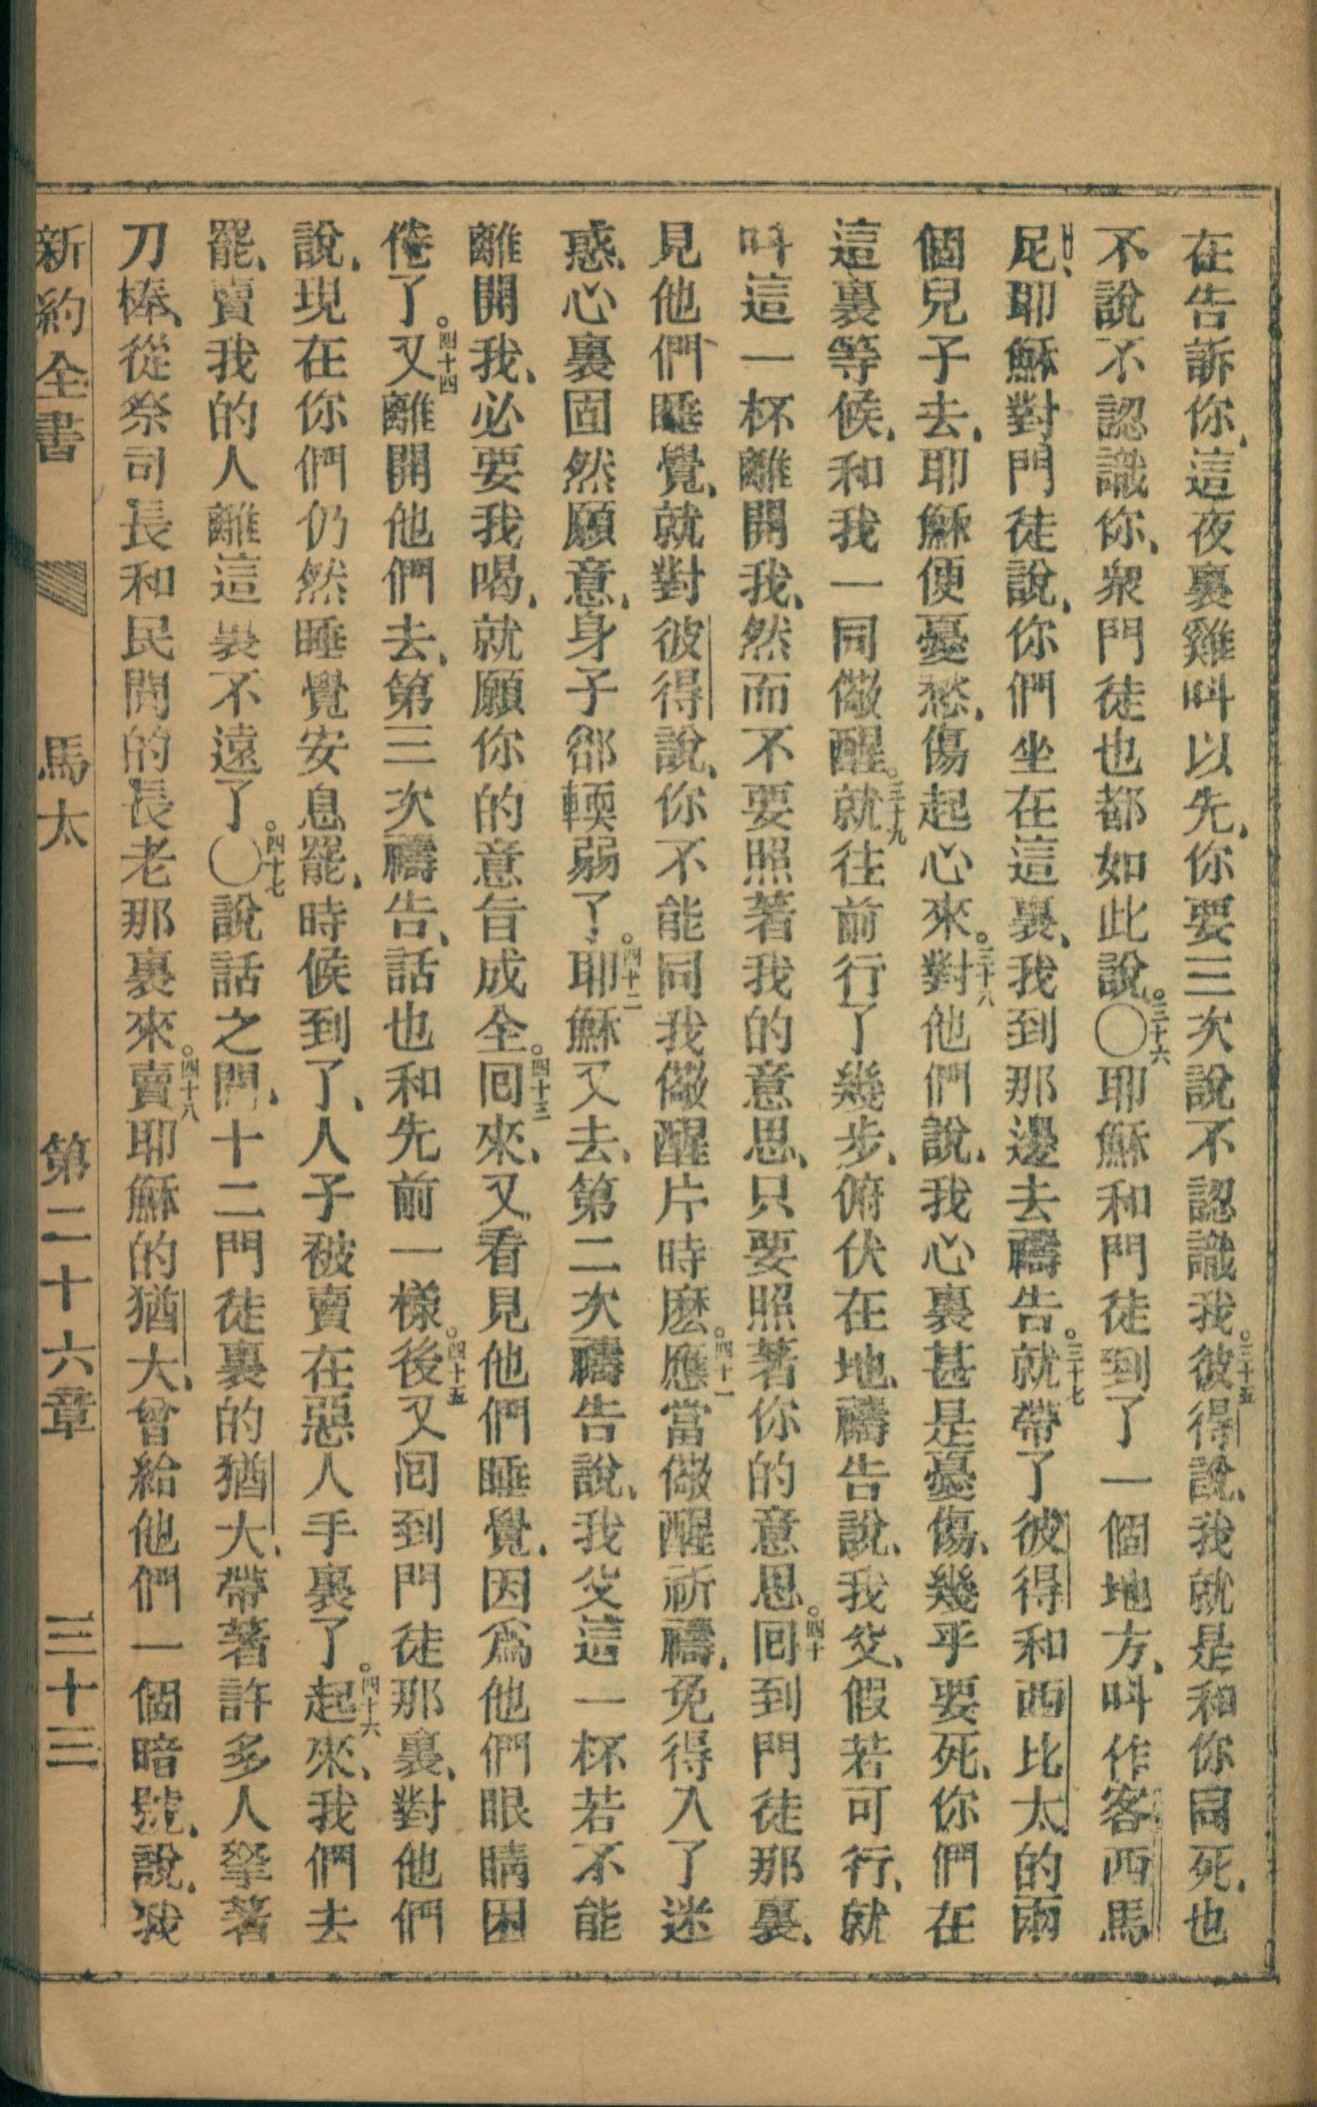 在告訴你、這夜裏雞叫以先、你要三次說不認識我。三十五彼得說、我就是和你同死、也
不說不認識你、衆門徒也都如此說。三十六〇耶穌和門徒到了一個地方、叫作客西馬
尼、耶穌對門徒說、你們坐在這裏、我到那邊去禱告。三十七就帶了彼得和西比太的兩
個兒子去、耶穌便憂愁、傷起心來。三十八對他們說、我心裏甚是憂傷、幾乎要死、你們在
這裏等候、和我一同儆醒。三十九就往前行了幾步、俯伏在地、禱告說、我父、假若可行、就
叫這一杯離開我、然而不要照著我的意思、只要照著你的意思。四十囘到門徒那裏、
見他們睡覺、就對彼得說、你不能同我儆醒片時麽。四十一應當儆醒祈禱、免得入了迷
惑、心裏固然願意、身子郤輭弱了。四十二耶穌又去、第二次禱告說、我父這一杯若不能
離開我、必要我喝、就願你的意旨成全。四十三囘來、又看見他們睡覺、因爲他們眼睛困
倦了。四十四又離開他們去、第三次禱告、話也和先前一樣。四十五後又囘到門徒那裏、對他們
說、現在你們仍然睡覺安息罷、時候到了、人子被賣在惡人手裏了。四十六起來、我們去
罷、賣我的人離這裏不遠了。四十七〇說話之間、十二門徒裏的猶大、帶著許多人拏著
刀棒、從祭司長和民間的長老那裏來。四十八賣耶穌的猶大、曾給他們一個暗號、說、我
新約全書 馬太 第二十六章 三十三